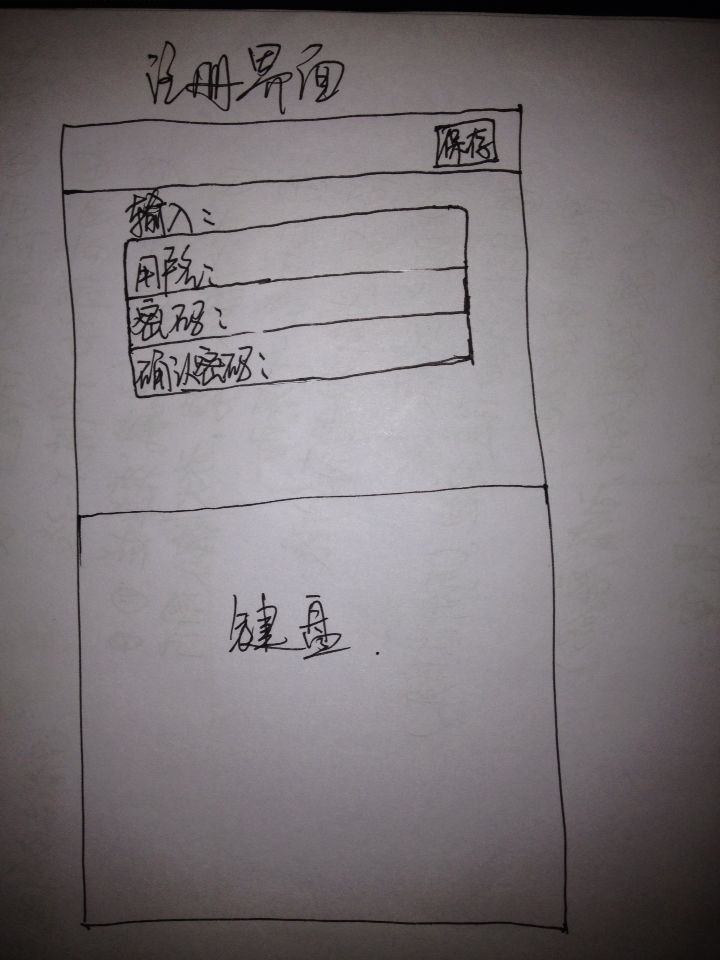 注册界面
保存
输入：
用户名：
密码：
确认密码：
键盘.